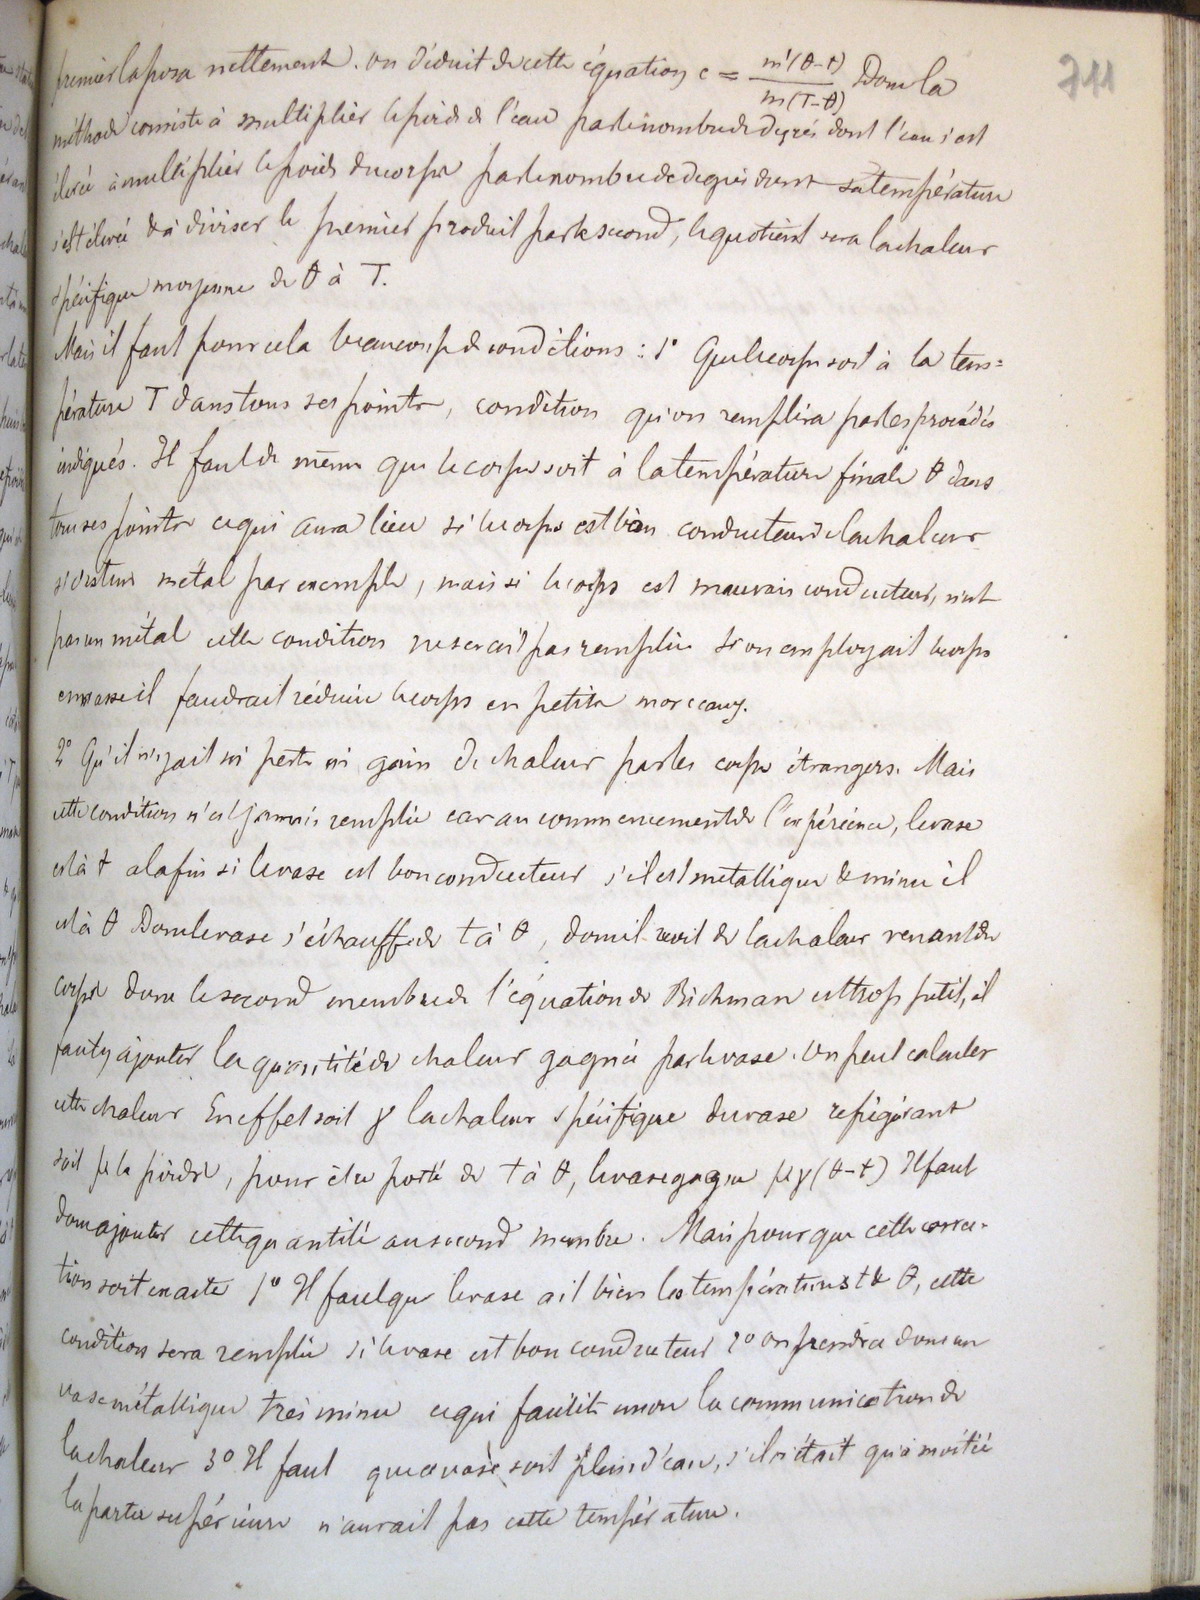 711
premier la posa nettement. On déduit de cette équation c = m'(θ-t) / m(T-θ) Donc la
méthode consiste à multiplier le poids de l'eau par le nombre de degrés dont l'eau s'est
élevée à multiplier le poids du corps par le nombre de degrés dont sa température
s'est élevée & à diviser le premier produit par le second, le quotient sera la chaleur
spécifique moyenne de θ à T.
Mais il faut pour cela beaucoup de conditions : 1° Que le corps soit à la tem=
pérature T dans tous ses points, condition qu'on remplira par les procédés
indiqués. Il faut de même que le corps soit à la température finale θ dans
tous ses points ce qui aura lieu si le corps est bien conducteur de la chaleur
si c'est un métal par exemple, mais si le corps est mauvais conducteur, n'est
pas un métal cette condition ne serait pas remplie si on employait le corps
en masse il faudrait réduire le corps en petits morceaux.
2° Qu'il n'y ait ni perte ni gain de chaleur par les corps étrangers. Mais
cette condition n'est jamais remplie car au commencement de l'expérience, le vase
est à t à la fin si le vase est bon conducteur s'il est metallique & mince il
est à θ Donc le vase s'échauffe de t à θ, donc il reçoit de la chaleur venant du
corps donc le second membre de l'équation de Richman est trop petit, il
faut y ajouter la quantité de chaleur gagnée par le vase. On peut calculer
cette chaleur En effet soit γ la chaleur spécifique du vase refrigérant
soit μ le poids, pour être porté de t à θ, le vase gagne μγ(θ-t) Il faut
donc ajouter cette quantité au second membre. Mais pour que cette correc-
tion soit exacte 1° Il faut que le vase ait bien les températures t & θ, cette
condition sera remplie si le vase est bon conducteur 2° on prendra donc un
vase métallique très mince ce qui facilite encore la communication de
la chaleur 3° Il faut que ce vase soit plein d'eau, s'il n'était qu'à moitié
la partie supérieure n'aurait pas cette température.